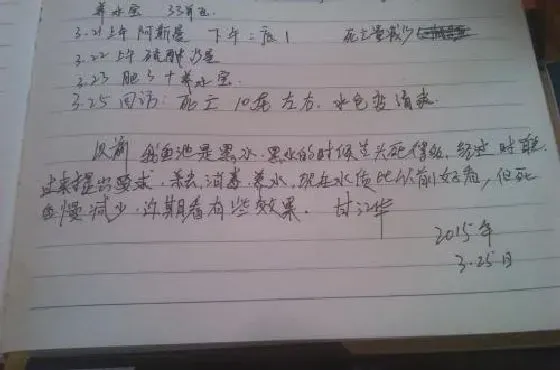 养水宝 33单瓦
3.21上午 阿斯曼 下午:底1 死亡量减少
3.22上午 硫醚沙星
3.23 肥3+养水宝
3.25 回访: 死亡 10尾左右. 水色变清爽.
以前 我鱼池是黑水. 黑水的时候鱼头死得很. 经过
过来提出要求. 杀虫消毒. 养水. 现在水质比以前好看, 但死
鱼慢减少. 近期看有些效果. 甘江华
2015年
3.25日